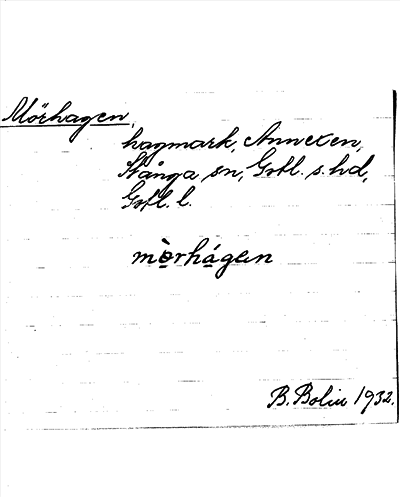 Mörhagen,
hagmark, Annexen,
Stånga sn, Gotl. s. hd,
Gotl. l.
mòrhágen
B. Bolin 1932.